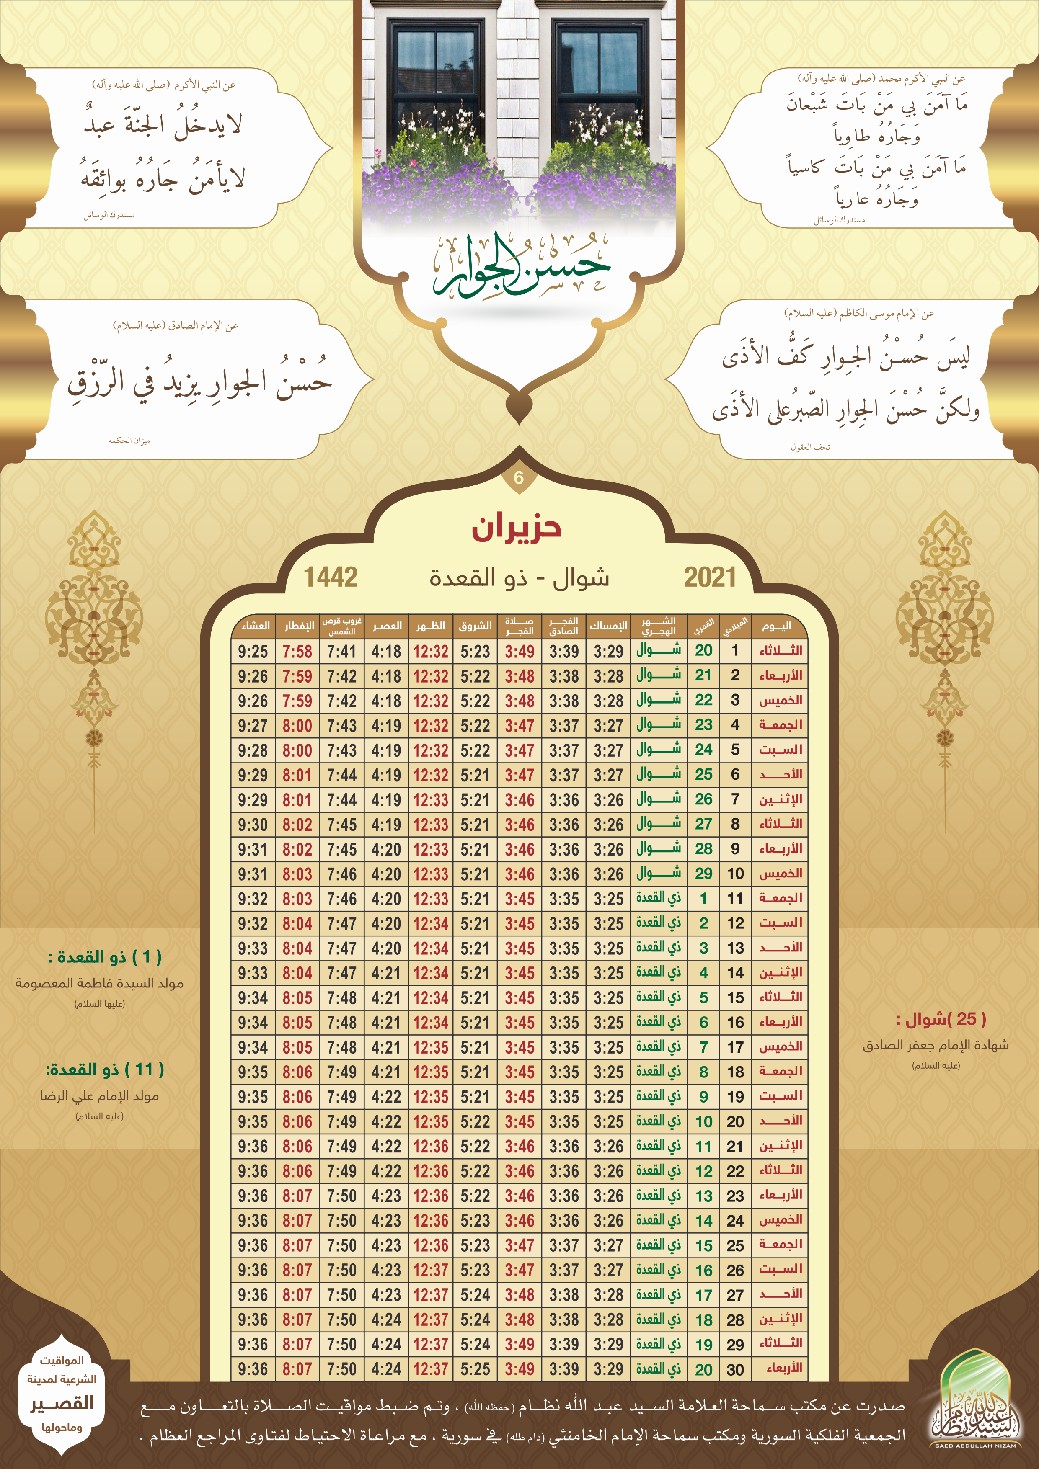 عن النبي الأكرم محمد (صلى الله عليه وآله)
مَا آمَنَ بي مَنْ بَاتَ شَبْعانَ
وَجَارُهُ طاوياً
مَا آمَنَ بي مَنْ بَاتَ كاسياً
وَجَارُهُ عارياً
مستدرك الوسائل
عن النبي الأكرم (صلى الله عليه وآله)
لايدخُلُ الجنّةَ عبدٌ
لايأمَنُ جَارُهُ بوائِقَهُ
مستدرك الوسائل
حُسنُ الجوار
عن الإمام موسى الكاظم (عليه السلام)
ليسَ حُسْنُ الجِوارِ كَفُّ الأذَى
ولكنَّ حُسْنَ الجِوارِ الصّبرُ على الأذَى
تحف العقول
عن الإمام الصادق (عليه السلام)
حُسْنُ الجوارِ يزيدُ في الرّزْقِ
ميزان الحكمة
6
حزيران
2021 شوال - ذو القعدة 1442
اليوم الميلادي القمري الشهر الهجري الإمساك الفجر الصادق صلاة الفجر الشروق الظهر العصر غروب قرص الشمس الإفطار العشاء
الثلاثاء 1 20 شوال 3:29 3:39 3:49 5:23 12:32 4:18 7:41 7:58 9:25
الأربعاء 2 21 شوال 3:28 3:38 3:48 5:22 12:32 4:18 7:42 7:59 9:26
الخميس 3 22 شوال 3:28 3:38 3:48 5:22 12:32 4:18 7:42 7:59 9:26
الجمعة 4 23 شوال 3:27 3:37 3:47 5:22 12:32 4:19 7:43 8:00 9:27
السبت 5 24 شوال 3:27 3:37 3:47 5:22 12:32 4:19 7:43 8:00 9:28
الأحد 6 25 شوال 3:27 3:37 3:47 5:21 12:32 4:19 7:44 8:01 9:29
الإثنين 7 26 شوال 3:26 3:36 3:46 5:21 12:33 4:19 7:44 8:01 9:29
الثلاثاء 8 27 شوال 3:26 3:36 3:46 5:21 12:33 4:19 7:45 8:02 9:30
الأربعاء 9 28 شوال 3:26 3:36 3:46 5:21 12:33 4:20 7:45 8:02 9:31
الخميس 10 29 شوال 3:26 3:36 3:46 5:21 12:33 4:20 7:46 8:03 9:31
الجمعة 11 1 ذي القعدة 3:25 3:35 3:45 5:21 12:33 4:20 7:46 8:03 9:32
السبت 12 2 ذي القعدة 3:25 3:35 3:45 5:21 12:34 4:20 7:47 8:04 9:32
الأحد 13 3 ذي القعدة 3:25 3:35 3:45 5:21 12:34 4:20 7:47 8:04 9:33
الإثنين 14 4 ذي القعدة 3:25 3:35 3:45 5:21 12:34 4:21 7:47 8:04 9:33
الثلاثاء 15 5 ذي القعدة 3:25 3:35 3:45 5:21 12:34 4:21 7:48 8:05 9:34
الأربعاء 16 6 ذي القعدة 3:25 3:35 3:45 5:21 12:34 4:21 7:48 8:05 9:34
الخميس 17 7 ذي القعدة 3:25 3:35 3:45 5:21 12:35 4:21 7:48 8:05 9:34
الجمعة 18 8 ذي القعدة 3:25 3:35 3:45 5:21 12:35 4:21 7:49 8:06 9:35
السبت 19 9 ذي القعدة 3:25 3:35 3:45 5:21 12:35 4:22 7:49 8:06 9:35
الأحد 20 10 ذي القعدة 3:25 3:35 3:45 5:22 12:35 4:22 7:49 8:06 9:35
الإثنين 21 11 ذي القعدة 3:26 3:36 3:46 5:22 12:35 4:22 7:49 8:06 9:36
الثلاثاء 22 12 ذي القعدة 3:26 3:36 3:46 5:22 12:36 4:22 7:49 8:06 9:36
الأربعاء 23 13 ذي القعدة 3:26 3:36 3:46 5:22 12:36 4:23 7:50 8:07 9:36
الخميس 24 14 ذي القعدة 3:26 3:36 3:46 5:23 12:36 4:23 7:50 8:07 9:36
الجمعة 25 15 ذي القعدة 3:27 3:37 3:47 5:23 12:36 4:23 7:50 8:07 9:36
السبت 26 16 ذي القعدة 3:27 3:37 3:47 5:23 12:37 4:23 7:50 8:07 9:36
الأحد 27 17 ذي القعدة 3:28 3:38 3:48 5:24 12:37 4:23 7:50 8:07 9:36
الإثنين 28 18 ذي القعدة 3:28 3:38 3:48 5:24 12:37 4:24 7:50 8:07 9:36
الثلاثاء 29 19 ذي القعدة 3:29 3:39 3:49 5:24 12:37 4:24 7:50 8:07 9:36
الأربعاء 30 20 ذي القعدة 3:29 3:39 3:49 5:25 12:37 4:24 7:50 8:07 9:36
( 25 )شوال :
شهادة الإمام جعفر الصادق
(عليه السلام)
( 1 ) ذو القعدة :
مولد السيدة فاطمة المعصومة
(عليها السلام)
( 11 ) ذو القعدة:
مولد الإمام علي الرضا
(عليه السلام)
صدرت عن مكتب سماحة العلامة السيد عبد الله نظام (حفظه الله) ، وتم ضبط مواقيت الصلاة بالتعاون مع
الجمعية الفلكية السورية ومكتب سماحة الإمام الخامنئي (دام ظله) في سورية ، مع مراعاة الاحتياط لفتاوى المراجع العظام .
المواقيت
الشرعية لمدينة
القصير
وماحولها
السيد عبد الله نظام
SAED ABDULLAH NIZAM